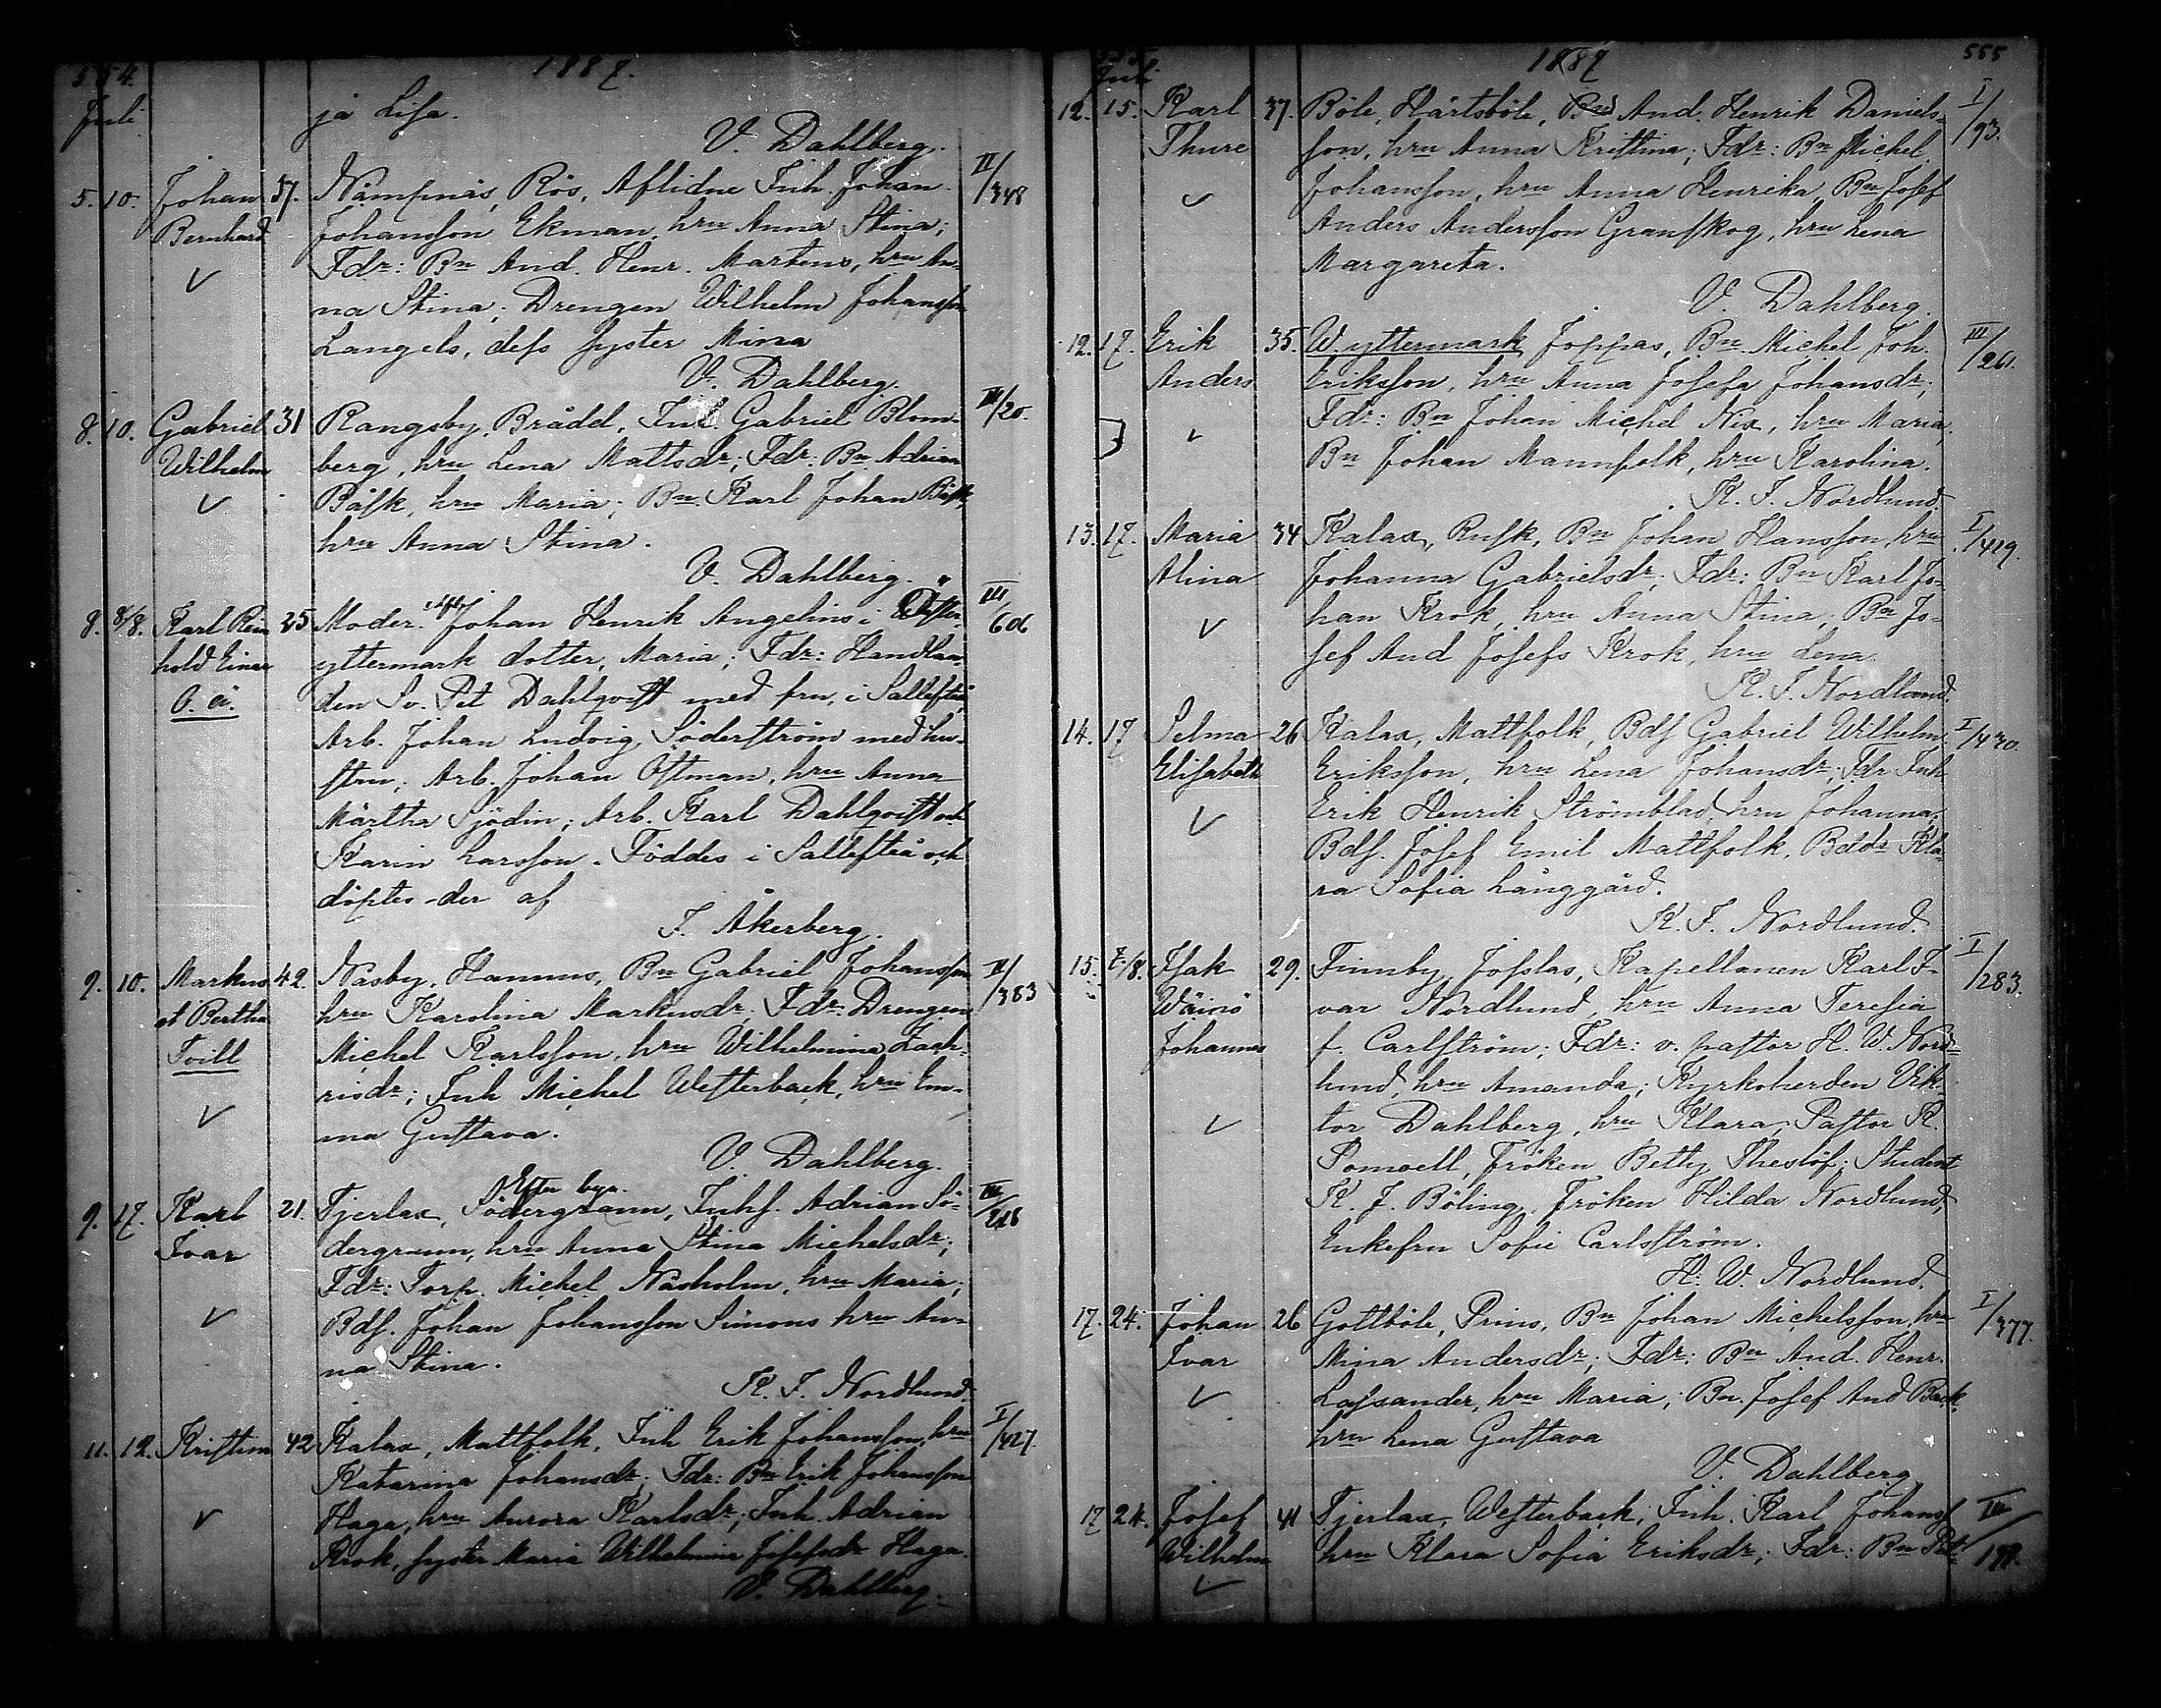 554.
1887.
Juli
ja Lisa.
V. Dahlberg.
5. 10. Johan 37. Nämpnäs, Rös, Aflidne Inh. Johan II/348
Bernhard Johansson Ekman, hru Anna Stina;
Fdr: Bn And. Henr. Martens, hru An-
na Stina; Drengen Wilhelm Johansson
Langels, dess syster Mina
V. Dahlberg.
8. 10. Gabriel 31 Rangsby, Brådd, Inh. Gabriel Blom- III/20.
Wilhelm berg, hru Lena Mattsdr; Fdr: Bn Adrian
Båsk, hru Maria; Bn Karl Johan Båsk,
hru Anna Stina.
V. Dahlberg.
8. 8/8. Karl Rein 25 Moder: Johan Henrik Angelins i III/606
hold Einar yttermark dotter, Maria; Fdr: Handlan-
O. ä. den Sv. Pet Dahlqvist med fru, i Sallefteå,
Arb. Johan Ludvig Söderström med hu-
stru; Arb. Johan Östman, hru Anna
Märtha Sjödin; Arb. Karl Dahlqvist och
Karin Larsson. Föddes i Sallefteå och
döptes der af
F. Åkerberg.
9. 10. Markus 42. Näsby, Hannus, Bn Gabriel Johansson II/383
et Bertha hru Karolina Markusdr; Fdr: Drengen
Tvill Michel Karlsson, hru Wilhelmina Zach-
risdr; Inh Michel Westerback, hru Em-
ma Gustava.
V. Dahlberg.
Efter bya.
9. 17. Karl 21. Tjerlax, Södergrann, Inhs. Adrian Sö- III/218
Ivar dergrann, hru Anna Stina Michelsdr;
Fdr: Torp. Michel Näsholm, hru Maria;
Bds. Johan Johansson Simons hru An-
na Stina.
K. I. Nordlund.
11. 12. Kristina 42 Kalax, Mattfolk, Inh Erik Johansson, hru I/427.
Katarina Johansdr; Fdr: Bn Erik Johansson
Haga, hru Aurora Karlsdr; Inh. Adrian
Krok, syster Maria Wilhelmina Josefsdr Haga.
V. Dahlberg.
1887
555
Juli
12. 15. Karl 37. Böle, Hårtsböle, And. Henrik Daniels- I/93.
Thure son, hru Anna Kristina; Fdr: Bn Michel
Johansson, hru Anna Henrika, Bn Josef
Anders Andersson Granskog, hru Lena
Margareta.
V. Dahlberg.
12. 17. Erik 35. W. yttermark Joppas, Bn Michel Joh. III/261.
Anders Eriksson, hru Anna Josefa Johansdr;
Fdr: Bn Johan Michel Nix, hru Maria,
Bn Johan Mannfolk, hru Karolina.
K. I. Nordlund.
13. 17. Maria 34 Kalax, Rusk, Bn Johan Hansson, hru I/419.
Alina Johanna Gabrielsdr; Fdr: Bn Karl Jo-
han Krok, hru Anna Stina; Bn Jo-
sef And Josefs Krok, hru Lena.
K. I. Nordlund.
14. 17 Selma 26 Kalax, Mattfolk, Bds Gabriel Wilhelm I/430.
Elisabeth Eriksson, hru Lena Johansdr; Fdr Inh
Erik Henrik Strömblad, hru Johanna;
Bds. Josef Emil Mattfolk, Bddr Kla-
ra Sofia Långgård.
K. I. Nordlund.
15. 7/8. Isak 29. Finnby, Jofslas, Kapellanen Karl I- I/283.
Wäinö var Nordlund, hru Anna Teresia
Johannes f. Carlström; Fdr: v. pastor H. W. Nord-
lund, hru Amanda; Kyrkoherden Vik-
tor Dahlberg, hru Klara; Pastor K.
Pomoell, Fröken Betty Theslöf; Student
K. J. Böling, Fröken Hilda Nordlund;
Enkefru Sofie Carlsström.
H. W. Nordlund.
17. 24. Johan 26 Gottböle, Prins, Bn Johan Michelsson, hru I/377.
Ivar Mina Andersdr; Fdr: Bn And. Henr.
Lassander, hru Maria; Bn. Josef And Back,
hru Lena Gustava
V. Dahlberg
17 24. Josef 41 Tjerlax, Westerback; Inh. Karl Johanss III/198.
Wilhelm hru Klara Sofia Eriksdr; Fdr: Bn Pet